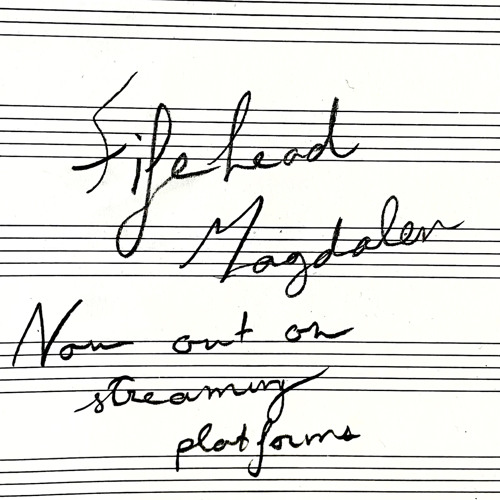 Fifehead
Magdalen
Now out on
streaming
platforms